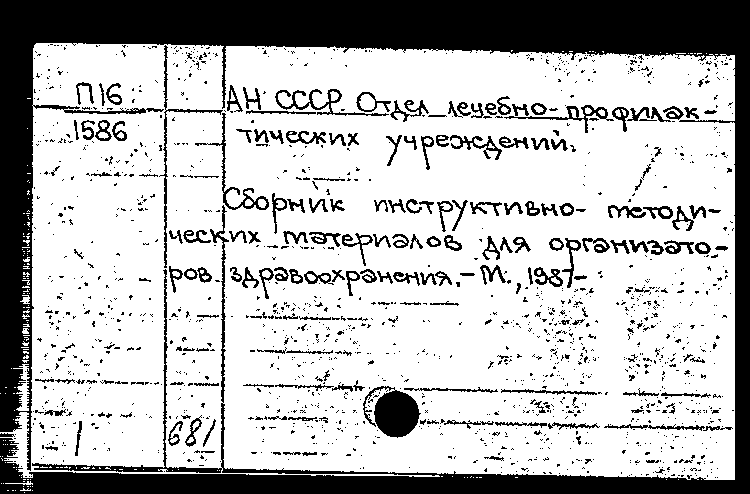 П16
1586
АН СССР. Отдел лечебно-профилак-
тических учреждений.
Сборник инструктивно-методи-
ческих материалов для организато-
ров здравоохранения.-М., 1987-
1
681